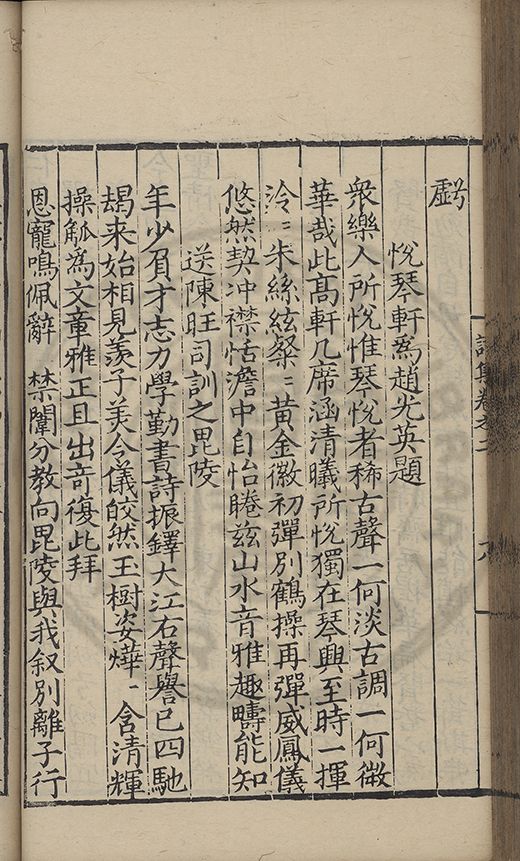 虧
悅琴軒為趙光英題
衆樂人所悅惟琴悅者稀古聲一何淡古調一何微
華哉此髙軒几席涵清曦所悅獨在琴興至時一揮
泠〻朱絲絃粲〻黃金徽初彈別鶴操再彈威鳳儀
悠然契冲襟恬澹中自怡睠兹山水音雅趣疇能知
送陳旺司訓之毘陵
年少負才志力學勤書詩振鐸大江右聲譽已四馳
朅来始相見羨子美令儀皎然玉樹姿燁〻含清輝
操觚為文章雅正且出竒復此拜
恩寵鳴佩辭 禁闈分教向毘陵與我叙別離子行
詩集卷之二